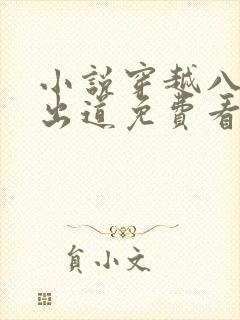 小說穿越八
出道免費看
貟小文